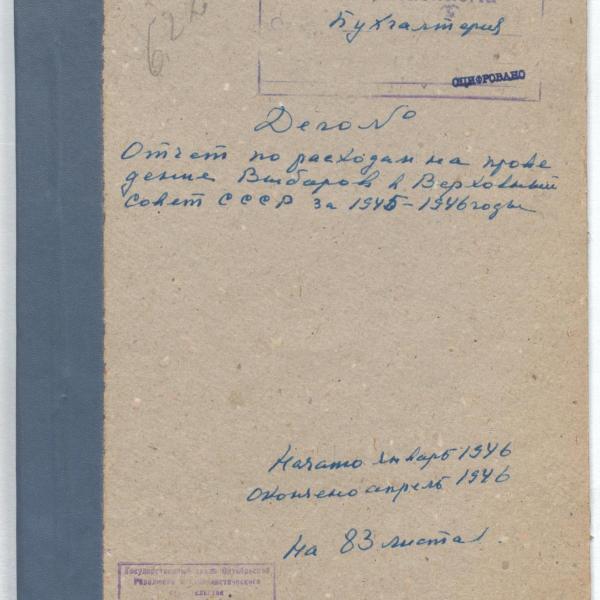 622
Бухгалтерия
ОЦИФРОВАНО
Дело №
Отчет по расходам на прове
дение Выборов в Верховный
Совет СССР за 1945-1946 годы
Начато январь 1946
Окончено апрель 1946
на 83 листах
Государственный архив Октябрьской
Революции и